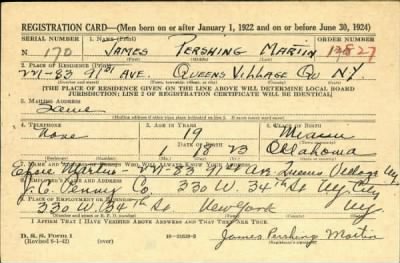 REGISTRATION CARD—(Men born on or after January 1, 1922 and on or before June 30, 1924)
SERIAL NUMBER 1. NAME (Print) ORDER NUMBER
N 170 JAMES PERSHING MARTIN 13827
(First) (Middle) (Last)
2. PLACE OF RESIDENCE (Print)
221-83 91st AVE. QUEENS VILLAGE QU N.Y.
[THE PLACE OF RESIDENCE GIVEN ON THE LINE ABOVE WILL DETERMINE LOCAL BOARD
JURISDICTION; LINE 2 OF REGISTRATION CERTIFICATE WILL BE IDENTICAL]
3. MAILING ADDRESS
Same
4. TELEPHONE 5. AGE IN YEARS 6. PLACE OF BIRTH
None 19 Miami
DATE OF BIRTH
1 18 23 Oklahoma
7. NAME AND ADDRESS OF PERSON WHO WILL ALWAYS KNOW YOUR ADDRESS
Martin 221-83 91st Av. Queens Village NY
8. EMPLOYER'S NAME AND ADDRESS
J.C. Penny Co. 330 W. 34th St NY. City
9. PLACE OF EMPLOYMENT OR BUSINESS
330 W. 34th St New York NY.
I AFFIRM THAT I HAVE VERIFIED ABOVE ANSWERS AND THAT THEY ARE TRUE.
D. S. S. Form 1
(Revised 6-1-42) (over)
James Pershing Martin